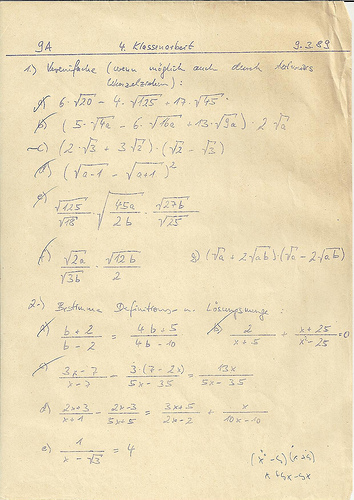 9A 4. Klassenarbeit 9.3.89
1.) Vereinfache (wenn möglich auch durch teilweises
Wurzelziehen):
a) 6·√20 - 4·√125 + 17·√45
b) (5·√4a - 6·√16a + 13·√9a) · 2√a
c) (2·√3 + 3√2) · (√2 - √3)
d) (√a-1 - √a+1)²
e) √125/√18 · √45a/2b · √27b/√25
f) √2a/√3b · √12b/2 g) (√a + 2√ab)·(√a - 2√ab)
2.) Bestimme Definitions- u. Lösungsmenge:
a) b+2/b-2 = 4b+5/4b-10 b) 2/x+5 + x+25/x²-25 = 0
c) 3x-7/x-7 - 3·(7-2x)/5x-35 = 13x/5x-35
d) 2x+3/x+1 - 2x-3/5x+5 = 3x+5/2x-2 + x/10x-10
e) 1/x-√3 = 4